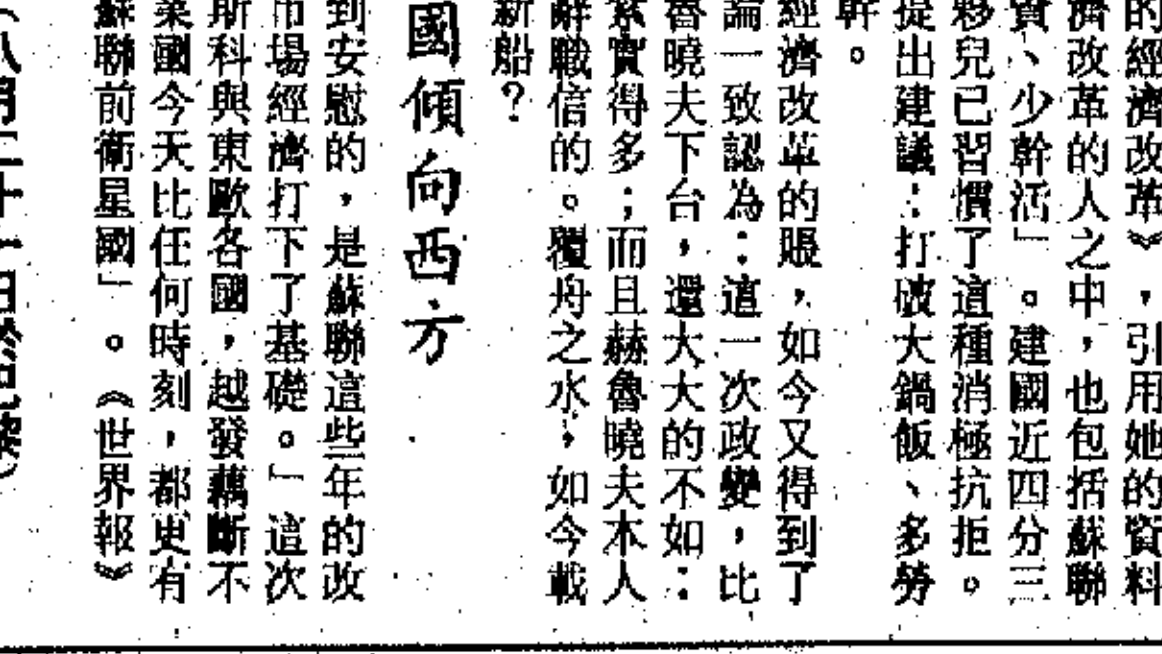 的經濟改革》，引用她的資料
濟改革的人之中，也包括蘇聯
資、少幹活」。建國近四分三
夥兒已習慣了這種消極抗拒。
提出建議：打破大鍋飯、多勞
幹。
經濟改革的賬，如今又得到了
論一致認為：這一次政變，比
魯曉夫下台，還大大的不如：
紮實得多；而且赫魯曉夫本人
辭職信的。覆舟之水，如今載
新船？
國傾向西方
到安慰的，是蘇聯這些年的改
市場經濟打下了基礎。」這次
斯科與東歐各國，越發藕斷不
業國今天比任何時刻，都更有
蘇聯前衛星國」。《世界報》